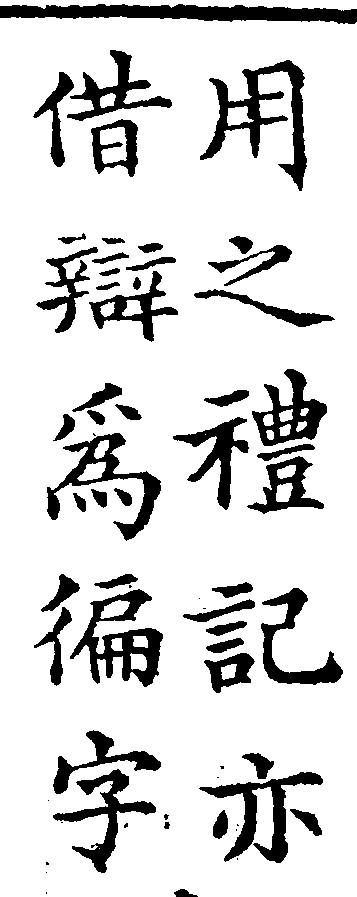 用之禮記亦
借辯爲徧字